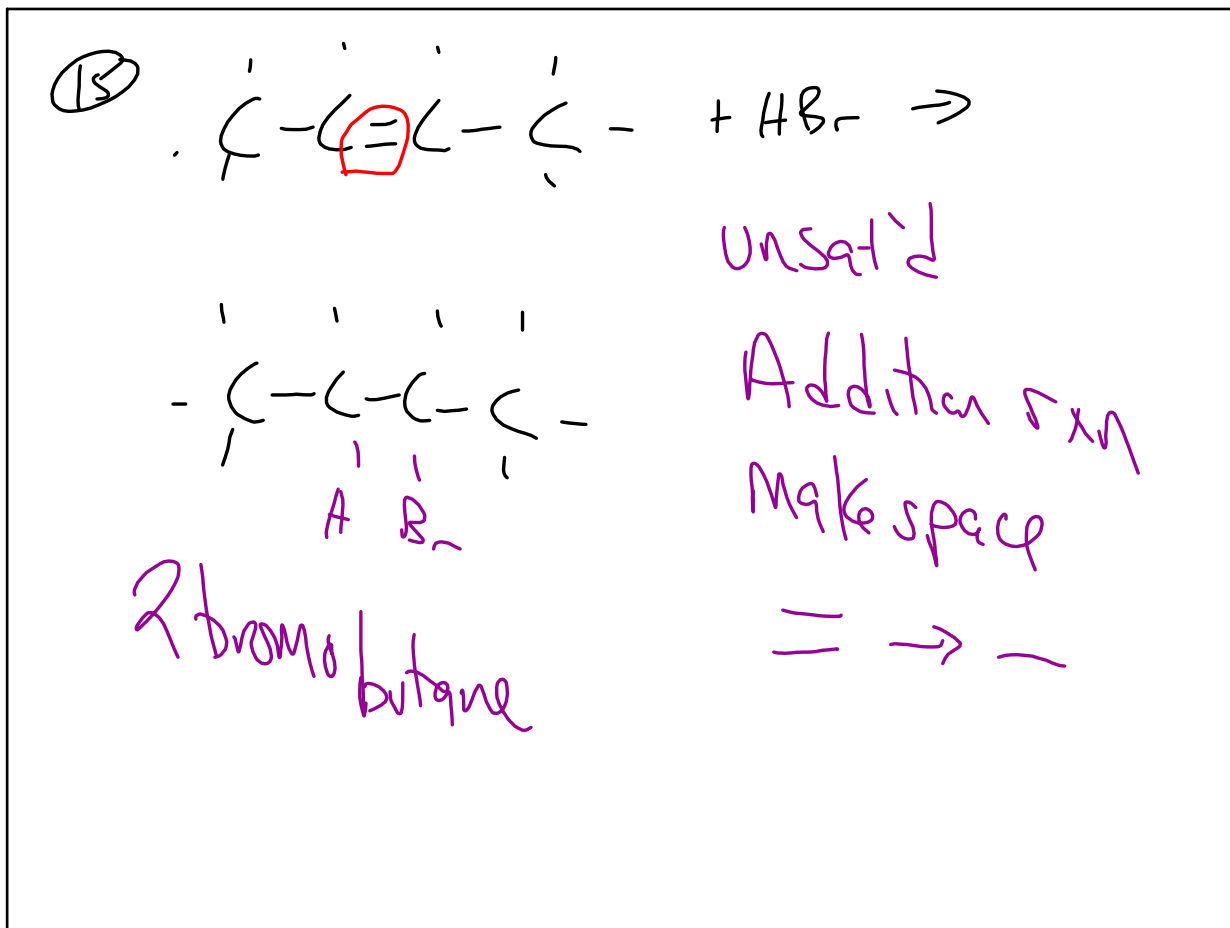 15
C - C = C - C - + HBr →
Unsat'd
- C - C - C - C -
Addition rxn
A Br
Make space
2 bromo butane
= → -